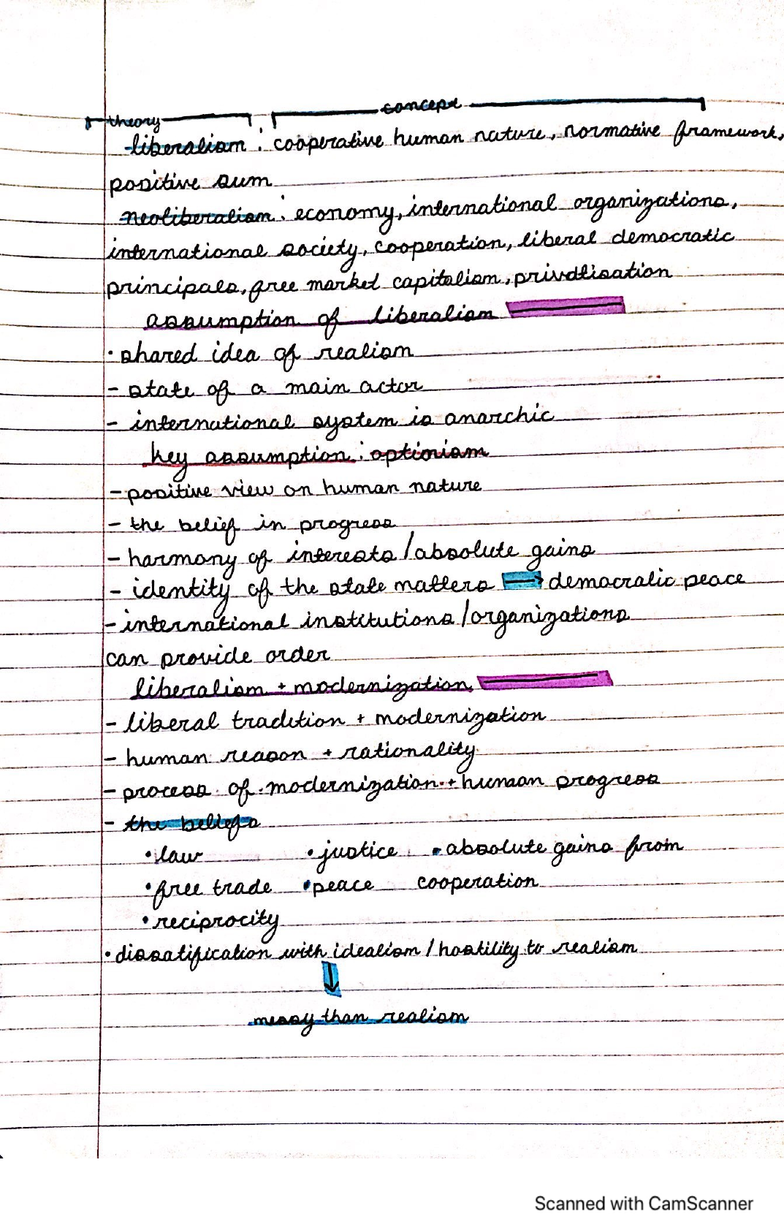 concept
theory
liberalism : cooperative human nature, normative framework,
positive sum
neoliberalism : economy, international organizations,
international society, cooperation, liberal democratic
principals, free market capitalism, privatisation
assumption of liberalism
• shared idea of realism
- state of a main actor
- international system is anarchic
key assumption : optimism
- positive view on human nature
- the belief in progress
- harmony of interests / absolute gains
- identity of the state matters → democratic peace
- international institutions / organizations
can provide order
liberalism + modernization
- liberal tradition + modernization
- human reason + rationality
- process of modernization + human progress
- the beliefs
• law • justice • absolute gains from
• free trade • peace cooperation
• reciprocity
• dissatification with idealism / hostility to realism
↓
messy than realism
Scanned with CamScanner